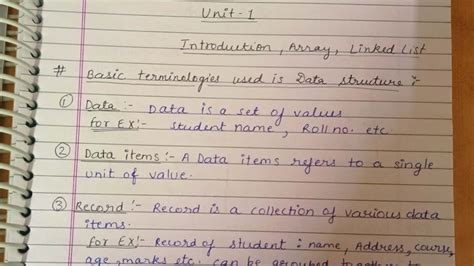 Unit - 1
Introduction, Array, Linked List
# Basic terminologies used is Data structure :-
① Data :- Data is a set of values
for Ex:- student name, Roll no. etc.
② Data items :- A Data items refers to a single
unit of value.
③ Record :- Record is a collection of various data
items.
for Ex:- Record of student : name, Address, course,
age, marks etc. can be grouped together to